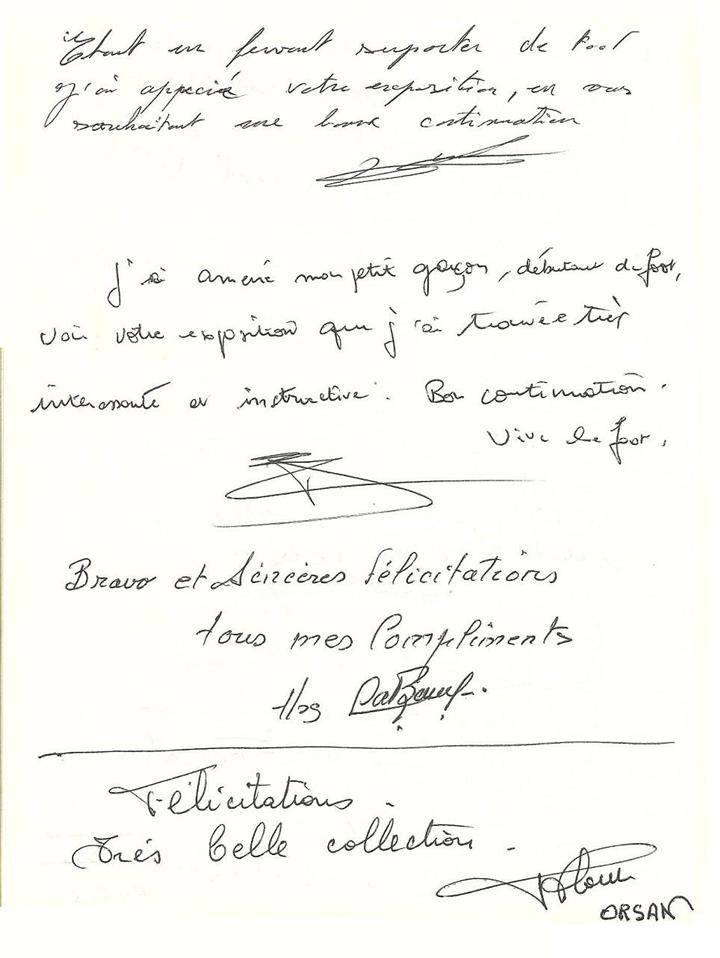 Etant un fervent suporter de foot
j'ai apprecié votre exposition, en vous
souhaitant une bonne continuation
J'ai amené mon petit garçon, débutant de foot,
voir votre exposition que j'ai trouvée très
interessante et instructive. Bon continuation.
Vive le foot.
Bravo et Sincères félicitations
tous mes Compliments
Félicitations.
Très belle collection.
ORSAN